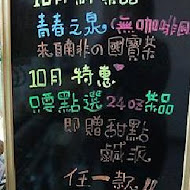 10月新茶品
青春之泉(無咖啡因
來自南非の國寶茶
10月 特惠
只要點選24oz茶品
即贈甜點
鹹派
任一款!!